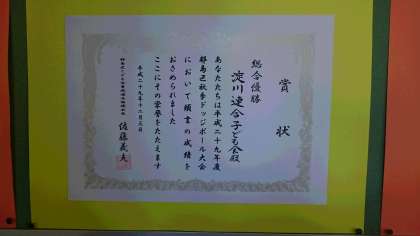 賞状
総合優勝
淀川連合子ども会殿
あなたたちは平成二十九年度
都島区秋季ドッジボール大会
において頭書の成績を
おさめられました
ここにその栄誉をたたえます
平成二十九年十二月三日
佐藤義夫